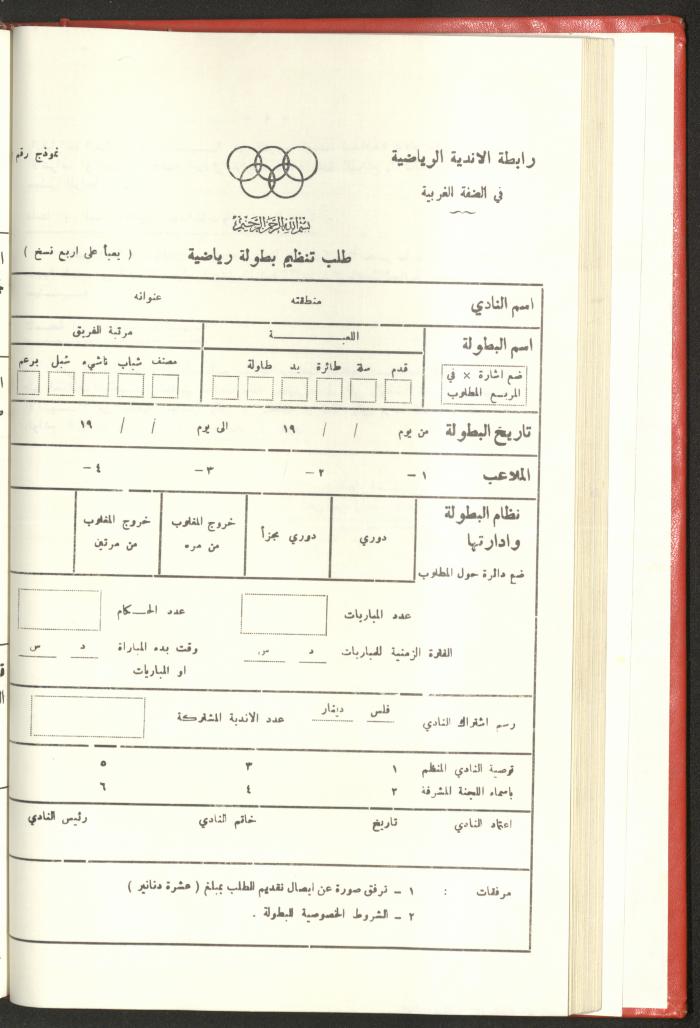 رابطة الاندية الرياضية
في الضفة الغربية
نموذج رقم
بسم الله الرحمن الرحيم
طلب تنظيم بطولة رياضية
( يعبأ على اربع نسخ )
اسم النادي منطقته عنوانه
اسم البطولة
ضع اشارة × في
المربع المطلوب
اللعبـــــــة
قدم سلة طائرة يد طاولة
مرتبة الفريق
مصنف شباب ناشيء شبل برعم
تاريخ البطولة من يوم / / ١٩ الى يوم / / ١٩
الملاعب ١ – ٢ – ٣ – ٤ –
نظام البطولة
وادارتها
ضع دائرة حول المطلوب
دوري
دوري مجزأ
خروج المغلوب
من مره
خروج المغلوب
من مرتين
عدد المباريات عدد الحـــكام
الفترة الزمنية للمباريات د س وقت بدء المباراة د س
او المباريات
رسم اشتراك النادي فلس دينار عدد الاندية المشتركة
توصية النادي المنظم ١ ٣ ٥
باسماء اللجنة المشرفة ٢ ٤ ٦
اعتماد النادي تاريخ خاتم النادي رئيس النادي
مرفقات : ١ – ترفق صورة عن ايصال تقديم الطلب بمبلغ ( عشرة دنانير )
٢ – الشروط الخصوصية للبطولة .